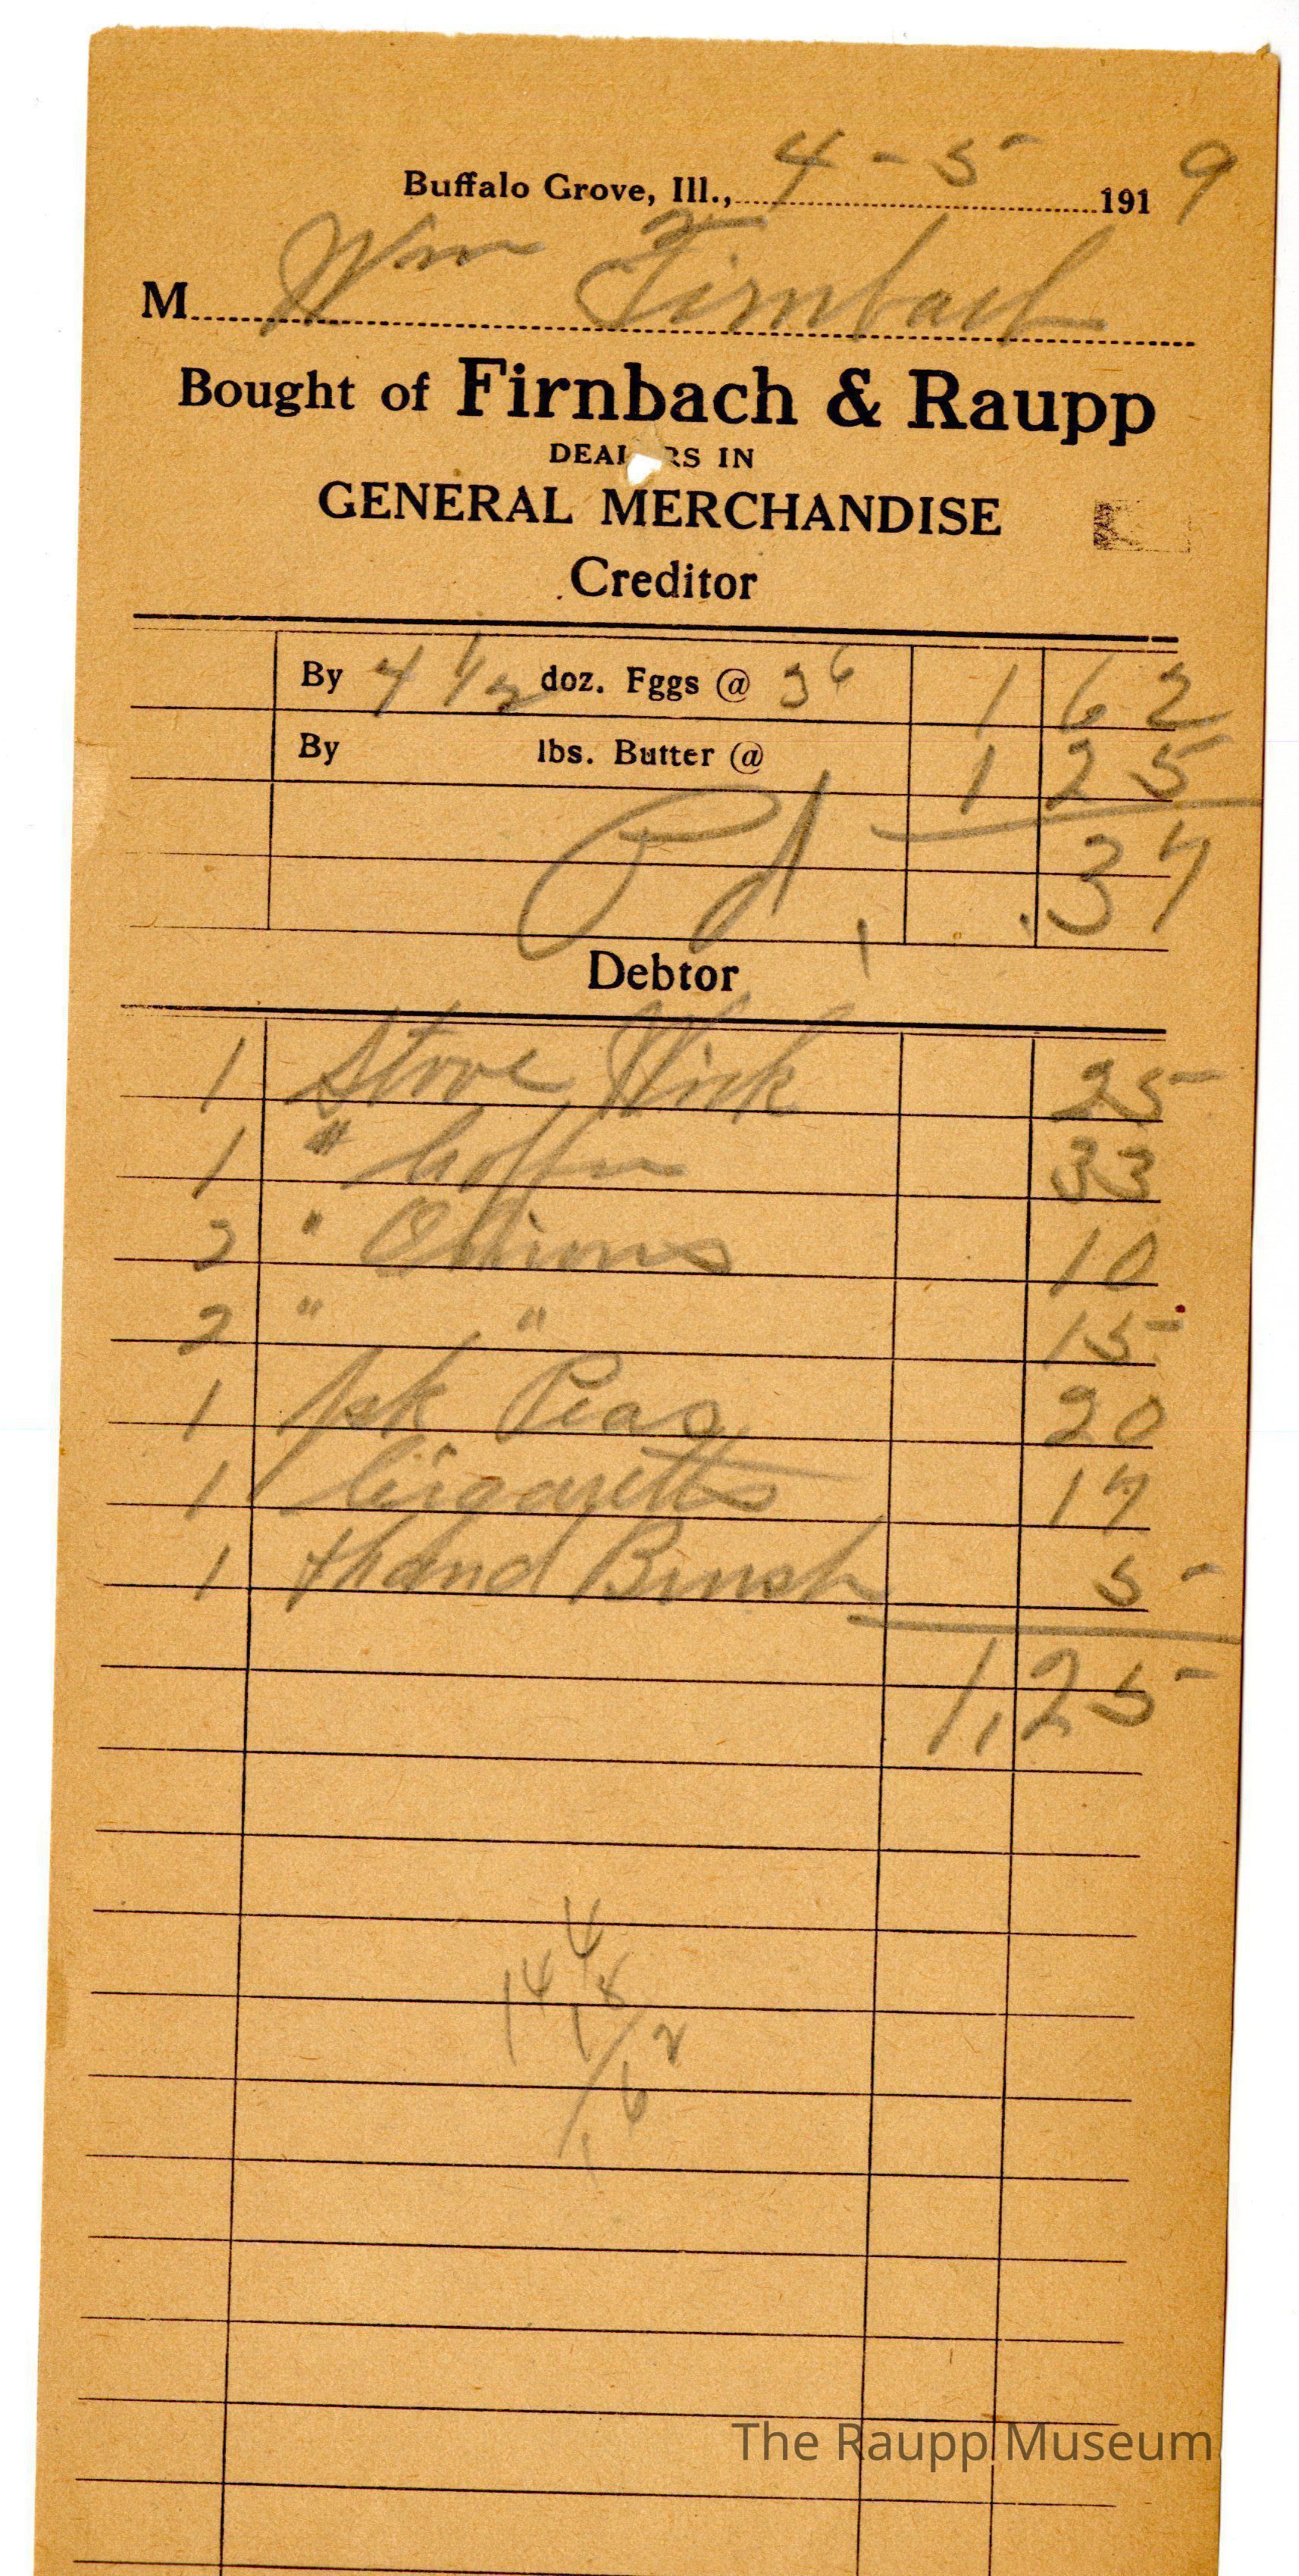 Buffalo Grove, Ill., 4-5 1919
M Wm Firnbach
Bought of Firnbach & Raupp
DEALERS IN
GENERAL MERCHANDISE
Creditor
By 4 1/2 doz. Fggs @ 36 1 62
By lbs. Butter @ 1 25
Pd. .37
Debtor
1 Stove Wick 25
1 " Coffee 33
2 " Onions 10
2 " " 15
1 pk Peas 20
1 Cigaretts 17
1 Hand Brush 5
1,25
4
14 18
1 2
6
The Raupp Museum